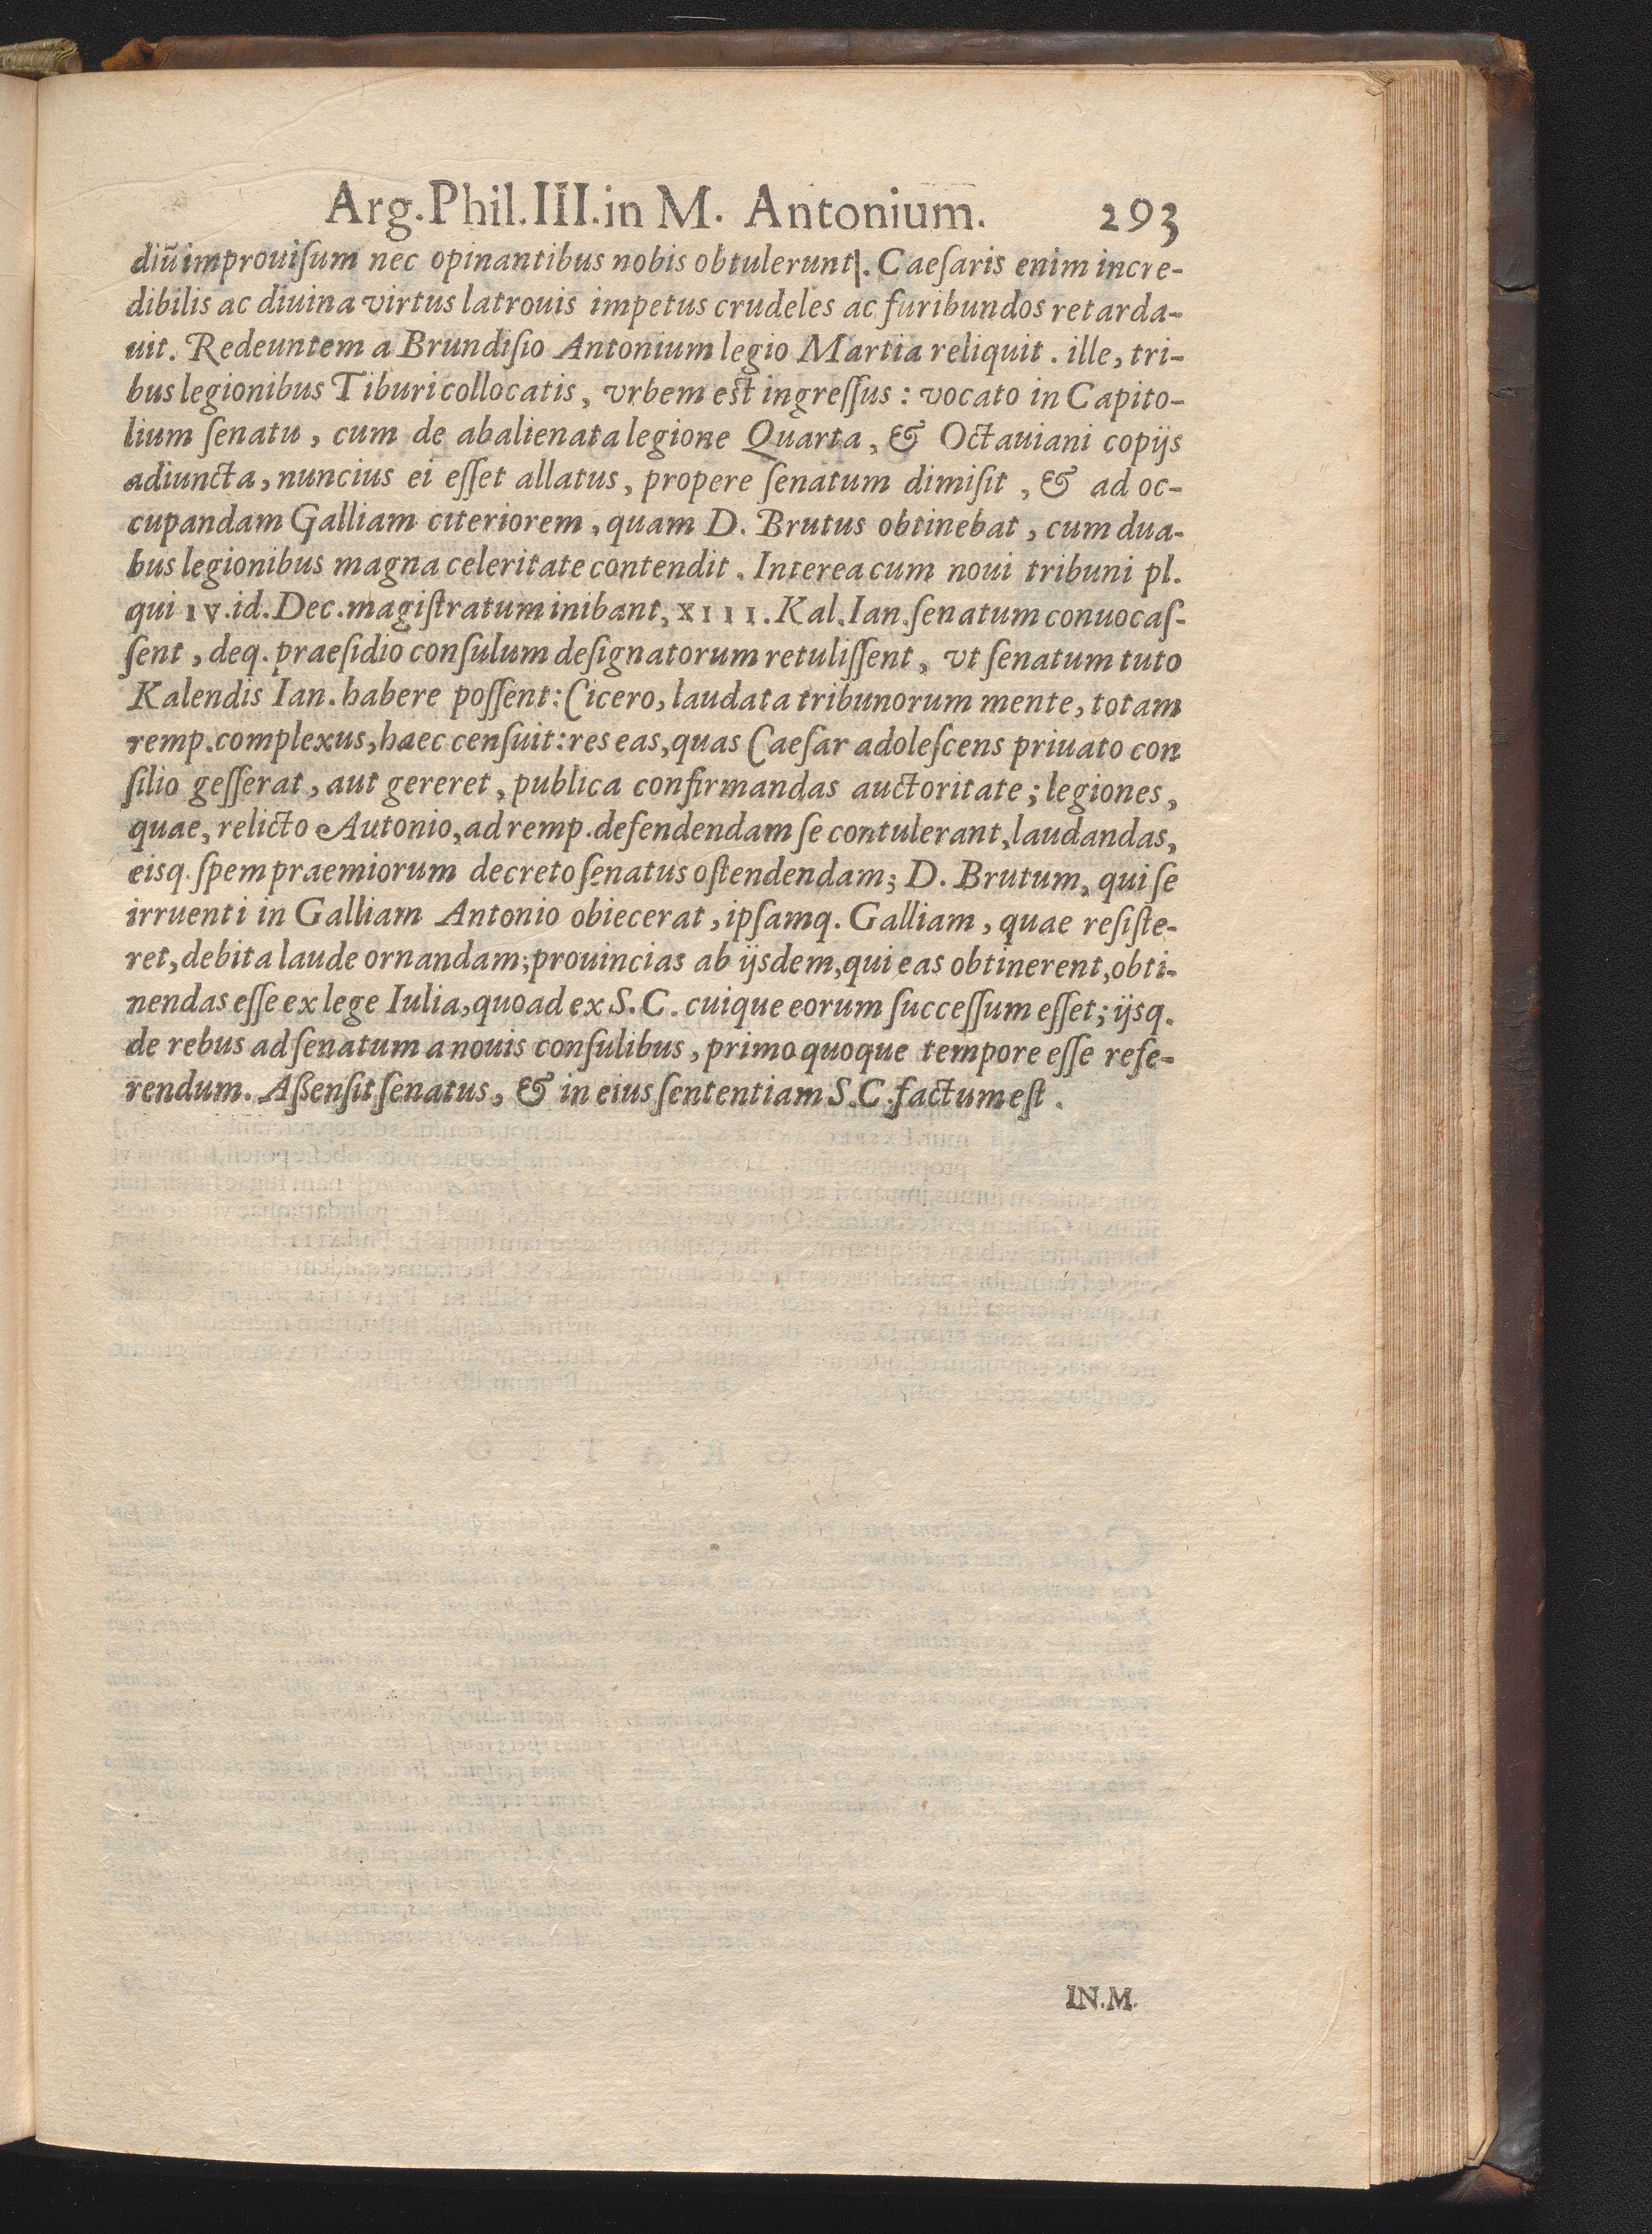 Arg.Phil.III.in M. Antonium. 293
diũ improuiſum nec opinantibus nobis obtulerunt|. Caeſaris enim incre-
dibilis ac diuina virtus latrouis impetus crudeles ac furibundos retarda-
uit. Redeuntem a Brundiſio Antonium legio Martia reliquit. ille, tri-
bus legionibus Tiburi collocatis, vrbem est ingreſſus: vocato in Capito-
lium ſenatu, cum de abalienata legione Quarta, & Octauiani copijs
adiuncta, nuncius ei eſſet allatus, propere ſenatum dimiſit, & ad oc-
cupandam Galliam citeriorem, quam D. Brutus obtinebat, cum dua-
bus legionibus magna celeritate contendit. Interea cum noui tribuni pl.
qui IV.id.Dec.magiſtratum inibant, XIII.Kal.Ian.ſenatum conuocaſ-
ſent, deq. praeſidio conſulum deſignatorum retuliſſent, vt ſenatum tuto
Kalendis Ian. habere poſſent: Cicero, laudata tribunorum mente, totam
remp.complexus, haec cenſuit: res eas, quas Caeſar adoleſcens priuato con
ſilio geſſerat, aut gereret, publica confirmandas auctoritate; legiones,
quae, relicto Autonio, ad remp.defendendam ſe contulerant, laudandas,
eisq. ſpem praemiorum decreto ſenatus oſtendendam; D. Brutum, qui ſe
irruenti in Galliam Antonio obiecerat, ipſamq. Galliam, quae reſiſte-
ret, debita laude ornandam; prouincias ab ijsdem, qui eas obtinerent, obti-
nendas eſſe ex lege Iulia, quoad ex S.C. cuique eorum ſucceſſum eſſet; ijsq.
de rebus ad ſenatum a nouis conſulibus, primo quoque tempore eſſe refe-
rendum. Aßenſit ſenatus, & in eius ſententiam S.C.factum eſt.
IN.M.